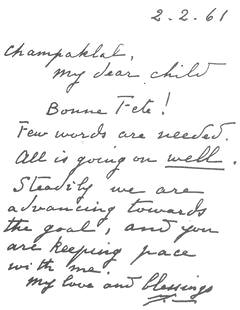 2.2.61
Champaklal,
my dear child
Bonne Fête!
Few words are needed.
All is going on well.
Steadily we are
advancing towards
the goal, and you
are keeping pace
with me.
my love and blessings